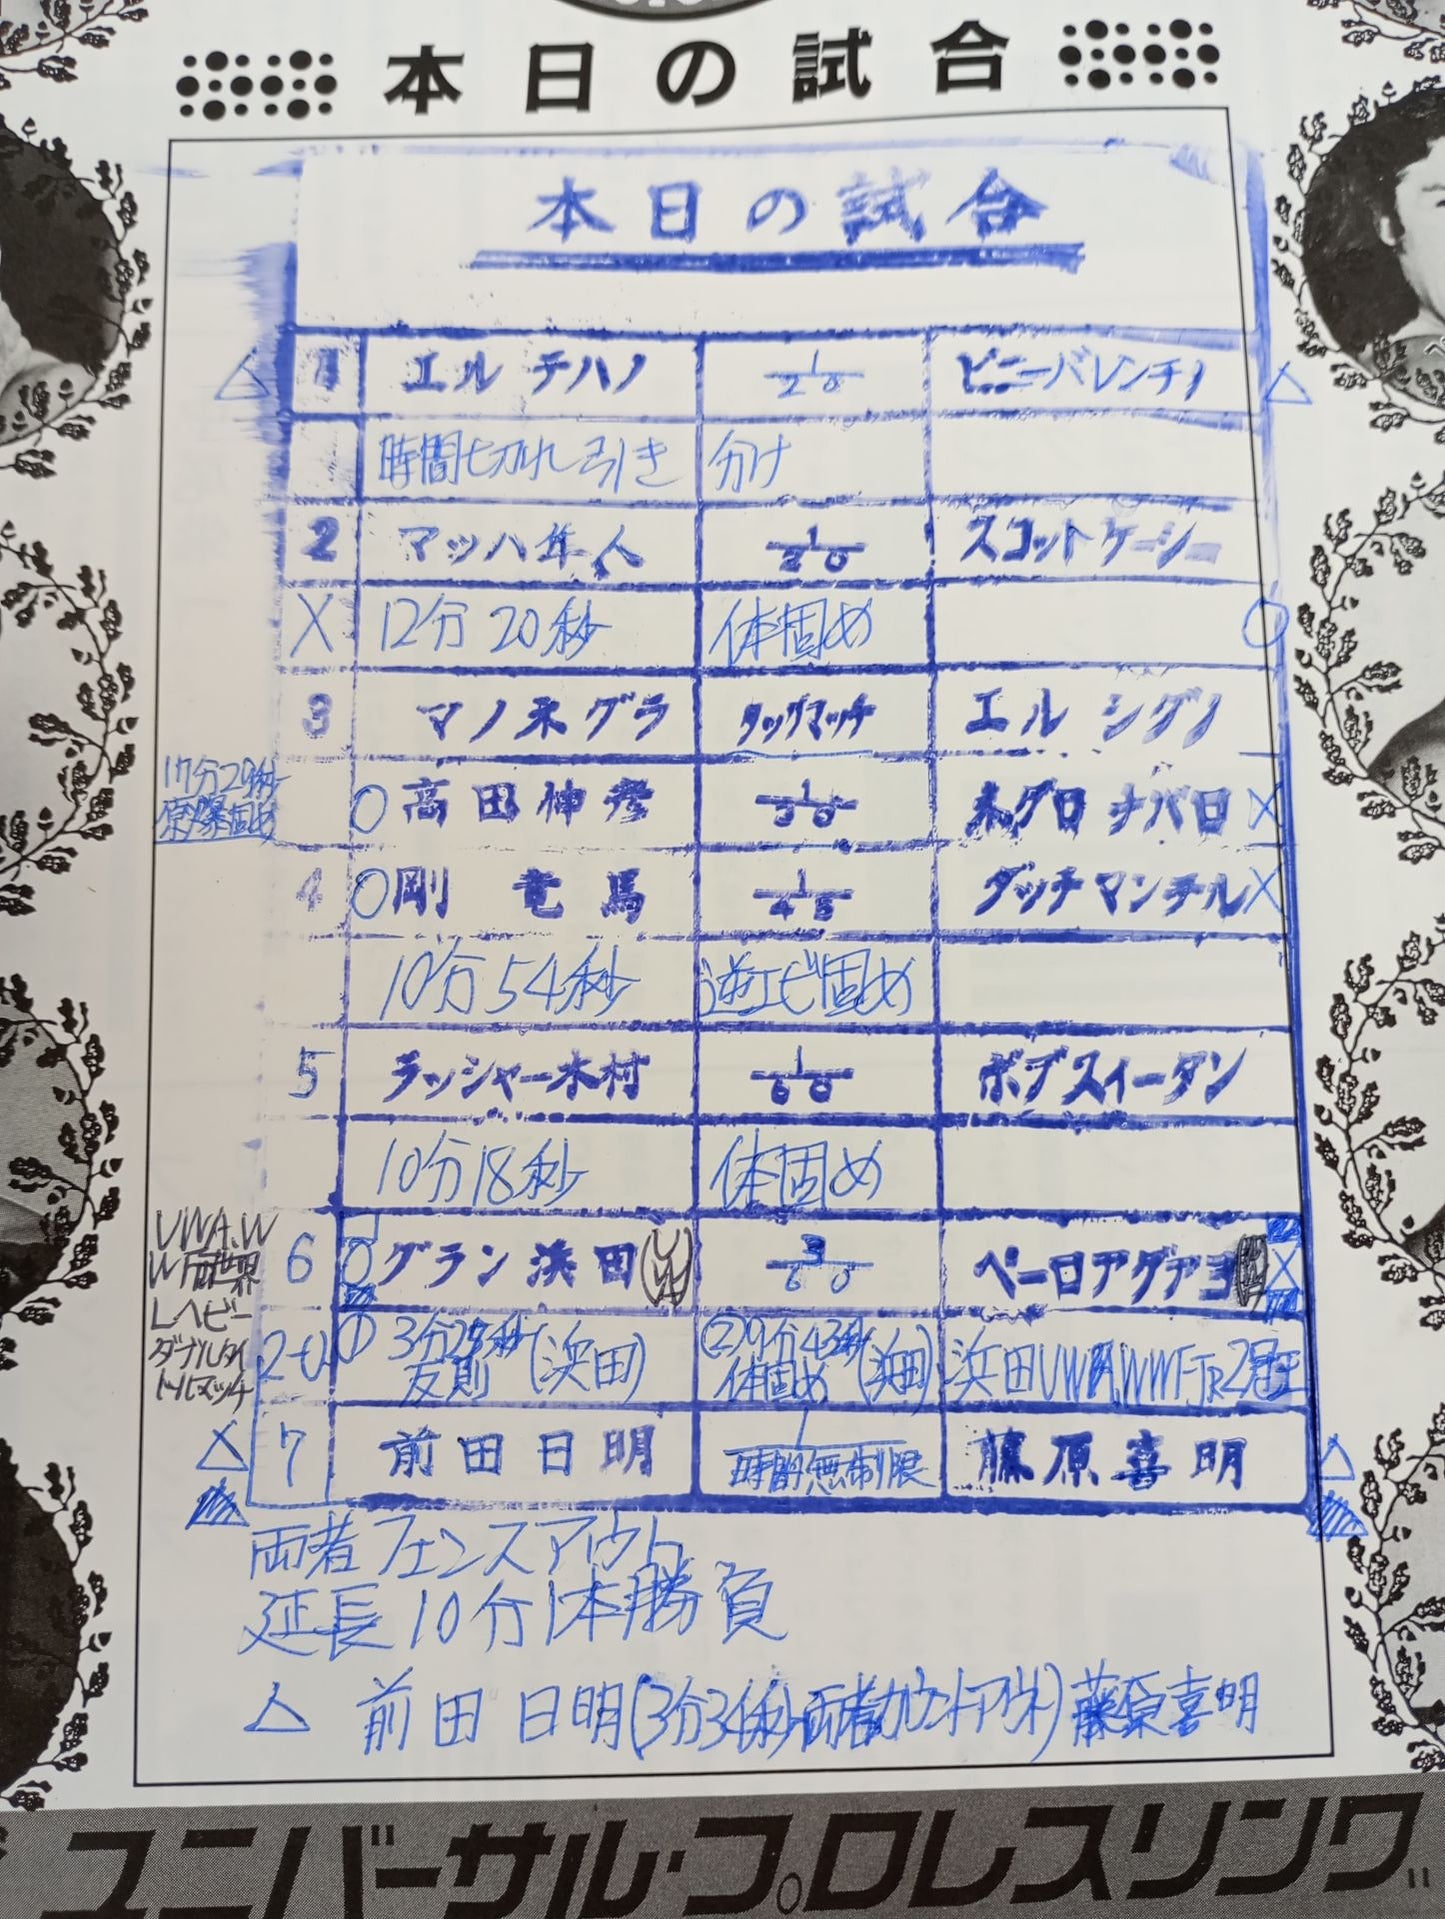 本日の試合
本日の試合
△ 1 エル テハノ 1/20 ビニーバレンチノ △
時間切れ引き 分け
2 マッハ隼人 1/20 スコットケーシー
X 12分20秒 体固め ○
3 マノネグラ タッグマッチ エル シグノ
17分29秒
原爆固め
○ 高田伸彦 1/30 ネグロ ナバロ X
4 ○ 剛 竜馬 1/45 ダッチマンテル X
10分54秒 逆エビ固め
5 ラッシャー木村 1/60 ボブスイータン
10分18秒 体固め
UWA.W
WF両世界
Lヘビー
ダブルタイ
トルマッチ
6 ○ グラン浜田 3/60 ペーロアグアヨ X
2-0 ① 3分25秒 (浜田) ②9分43秒 (浜田) 浜田UWA,WWF.Jr2冠王
反則 体固め
△ 7 前田日明 1/時間無制限 藤原喜明 △
両者フェンスアウト
延長10分1本勝負
△ 前田日明(3分34秒両者カウントアウト)藤原喜明
ユニバーサル・プロレスリング